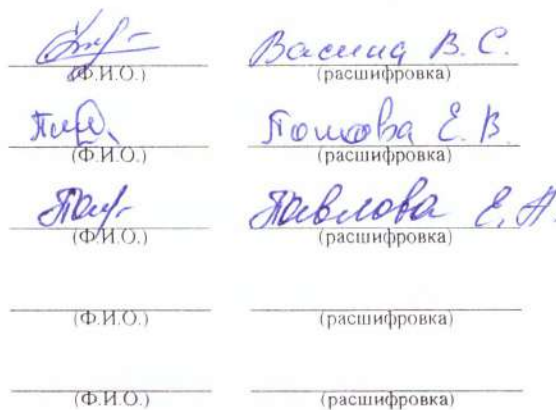 Васина В. С.
(Ф.И.О.) (расшифровка)
Е. В.
(Ф.И.О.) (расшифровка)
Павлова Е. А.
(Ф.И.О.) (расшифровка)
(Ф.И.О.) (расшифровка)
(Ф.И.О.) (расшифровка)